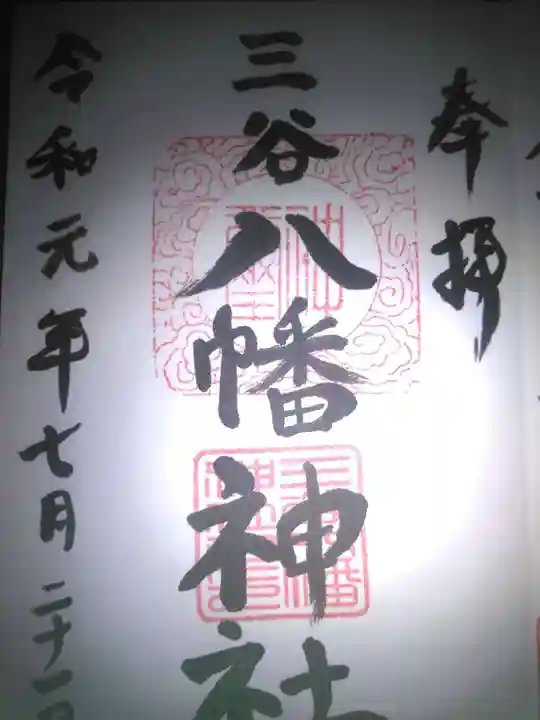 奉拝
三谷八幡神社
令和元年七月二十一日